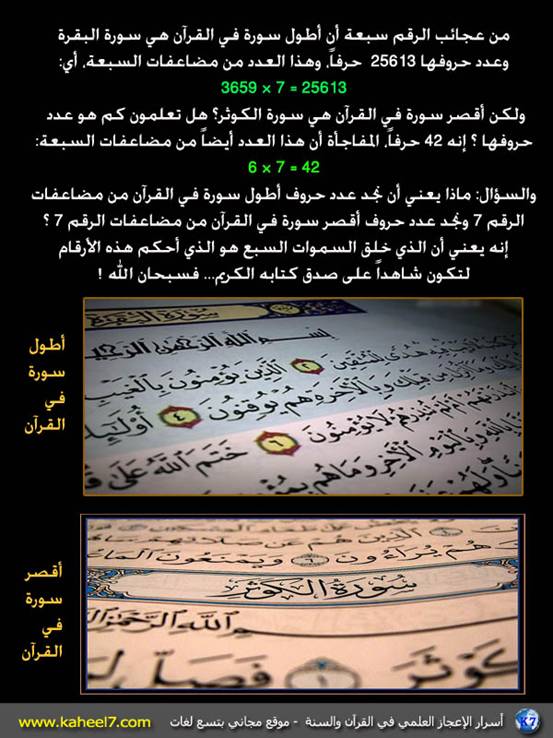 من عجائب الرقم سبعة أن أطول سورة في القرآن هي سورة البقرة
وعدد حروفها 25613 حرفاً، وهذا العدد من مضاعفات السبعة، أي:
3659 × 7 = 25613
ولكن أقصر سورة في القرآن هي سورة الكوثر؟ هل تعلمون كم هو عدد
حروفها ؟ إنه 42 حرفاً، المفاجأة أن هذا العدد أيضاً من مضاعفات السبعة:
6 × 7 = 42
والسؤال: ماذا يعني أن نجد عدد حروف أطول سورة في القرآن من مضاعفات
الرقم 7 ونجد عدد حروف أقصر سورة في القرآن من مضاعفات الرقم 7 ؟
إنه يعني أن الذي خلق السموات السبع هو الذي أحكم هذه الأرقام
لتكون شاهداً على صدق كتابه الكريم... فسبحان الله !
أطول
سورة
في
القرآن
بسم الله الرحمن الرحيم
هدى للمتقين ٢ الذين يؤمنون بالغيب
وبالآخرة هم يوقنون ٤ أولئك
لا يؤمنون ٦ ختم الله على
أقصر
سورة
في
القرآن
الذين هم عن صلاتهم
هم يراءون ٦ ويمنعون
سورة الكوثر
الله الرحمن
فصل ١ الكوثر
أسرار الإعجاز العلمي في القرآن والسنة - موقع مجاني بتسع لغات www.kaheel7.com
K7